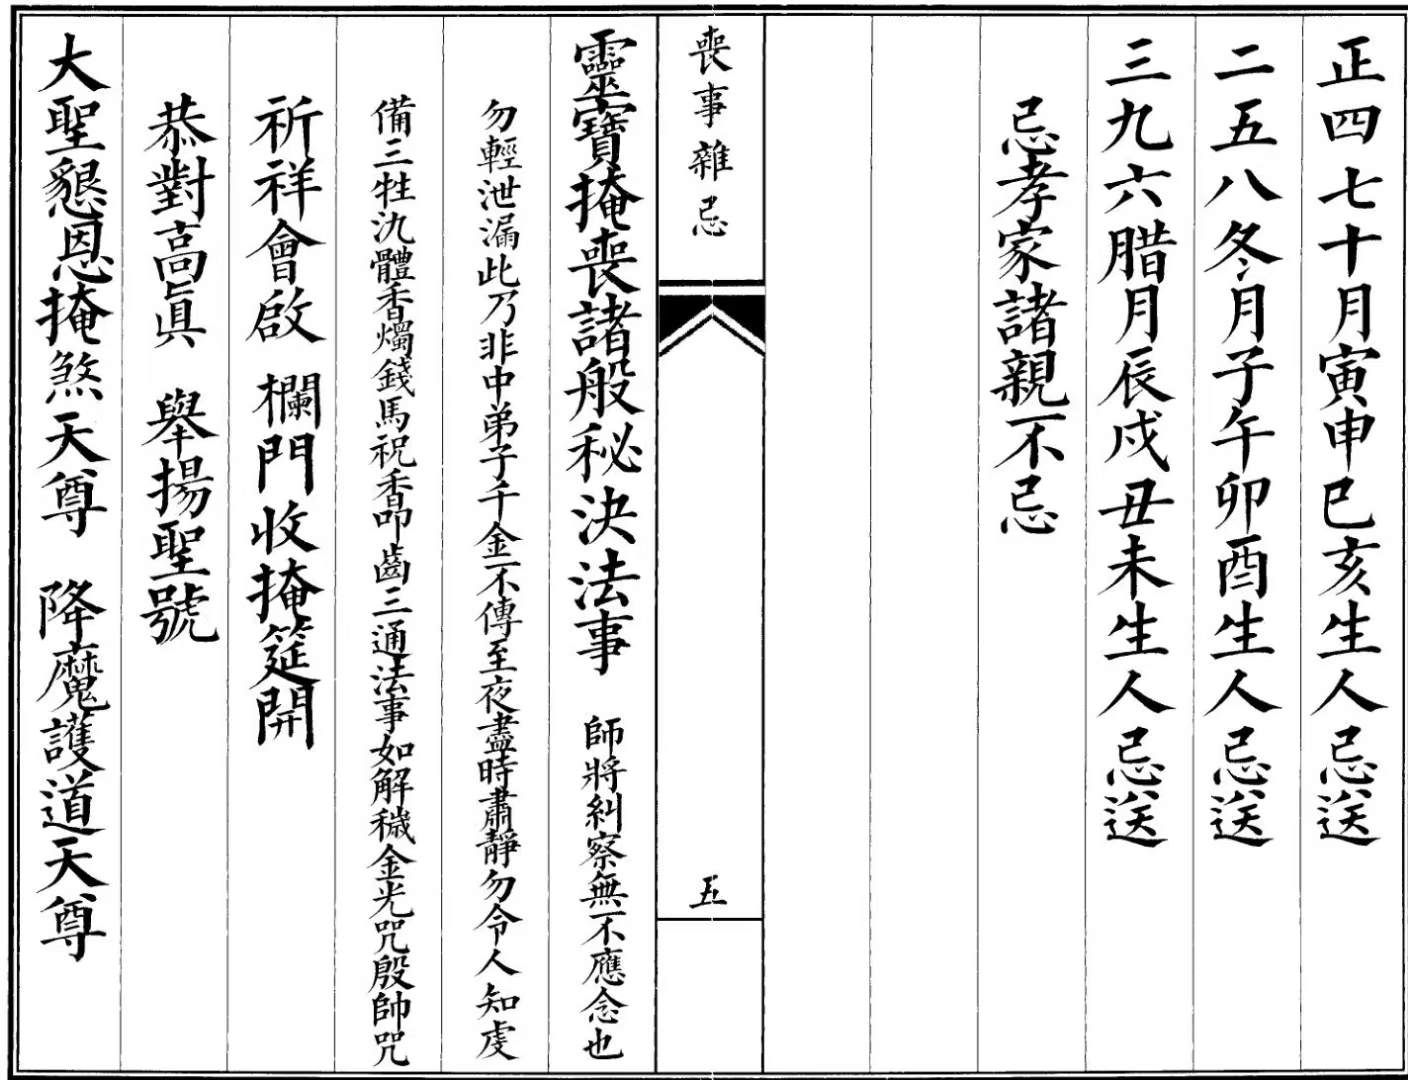 正四七十月寅申巳亥生人忌送
二五八冬月子午卯酉生人忌送
三九六腊月辰戌丑未生人忌送
忌孝家諸親不忌
喪事雜忌
五
靈寶掩喪諸般秘決法事 師將糾察無不應念也
勿輕泄漏此乃非中弟子千金不傳至夜盡時肅靜勿令人知虔
備三牲氿體香燭錢馬祝香叩齒三通法事如解穢金光咒殷帥咒
祈祥會啟 欄門收掩筵開
恭對高眞 舉揚聖號
大聖懇恩掩煞天尊 降魔護道天尊